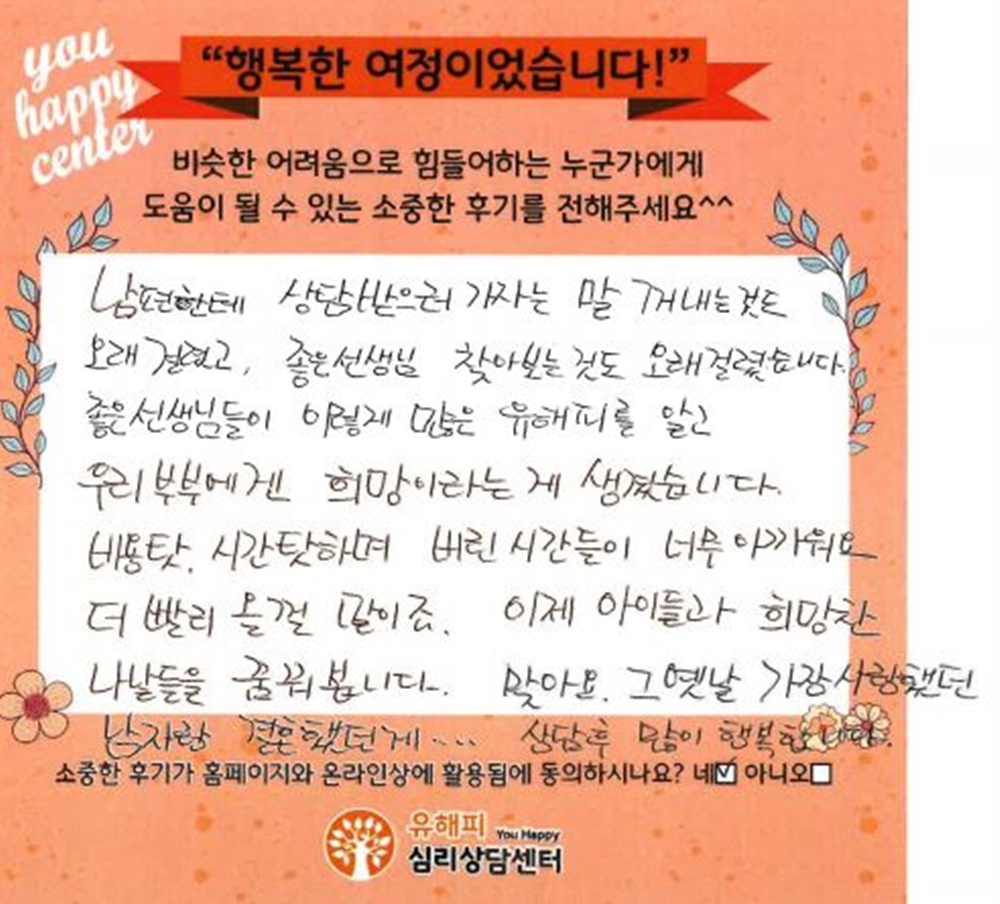 you
happy
center
“행복한 여정이었습니다!”
비슷한 어려움으로 힘들어하는 누군가에게
도움이 될 수 있는 소중한 후기를 전해주세요^^
남편한테 상담받으러 가자는 말 꺼내는것도
오래걸렸고, 좋은선생님 찾아보는것도 오래걸렸습니다.
좋은선생님들이 이렇게 많은 유해피를 알고
우리부부에겐 희망이라는게 생겼습니다.
비용탓, 시간탓하며 버린시간들이 너무아까워요
더 빨리 올걸 말이죠. 이제 아이들과 희망찬
나날들을 꿈꿔봅니다. 맞아요. 그옛날 가장사랑했던
남자랑 결혼했던게... 상담후 많이 행복합니다.
소중한 후기가 홈페이지와 온라인상에 활용됨에 동의하시나요? 네☑ 아니오☐
유해피 You Happy
심리상담센터